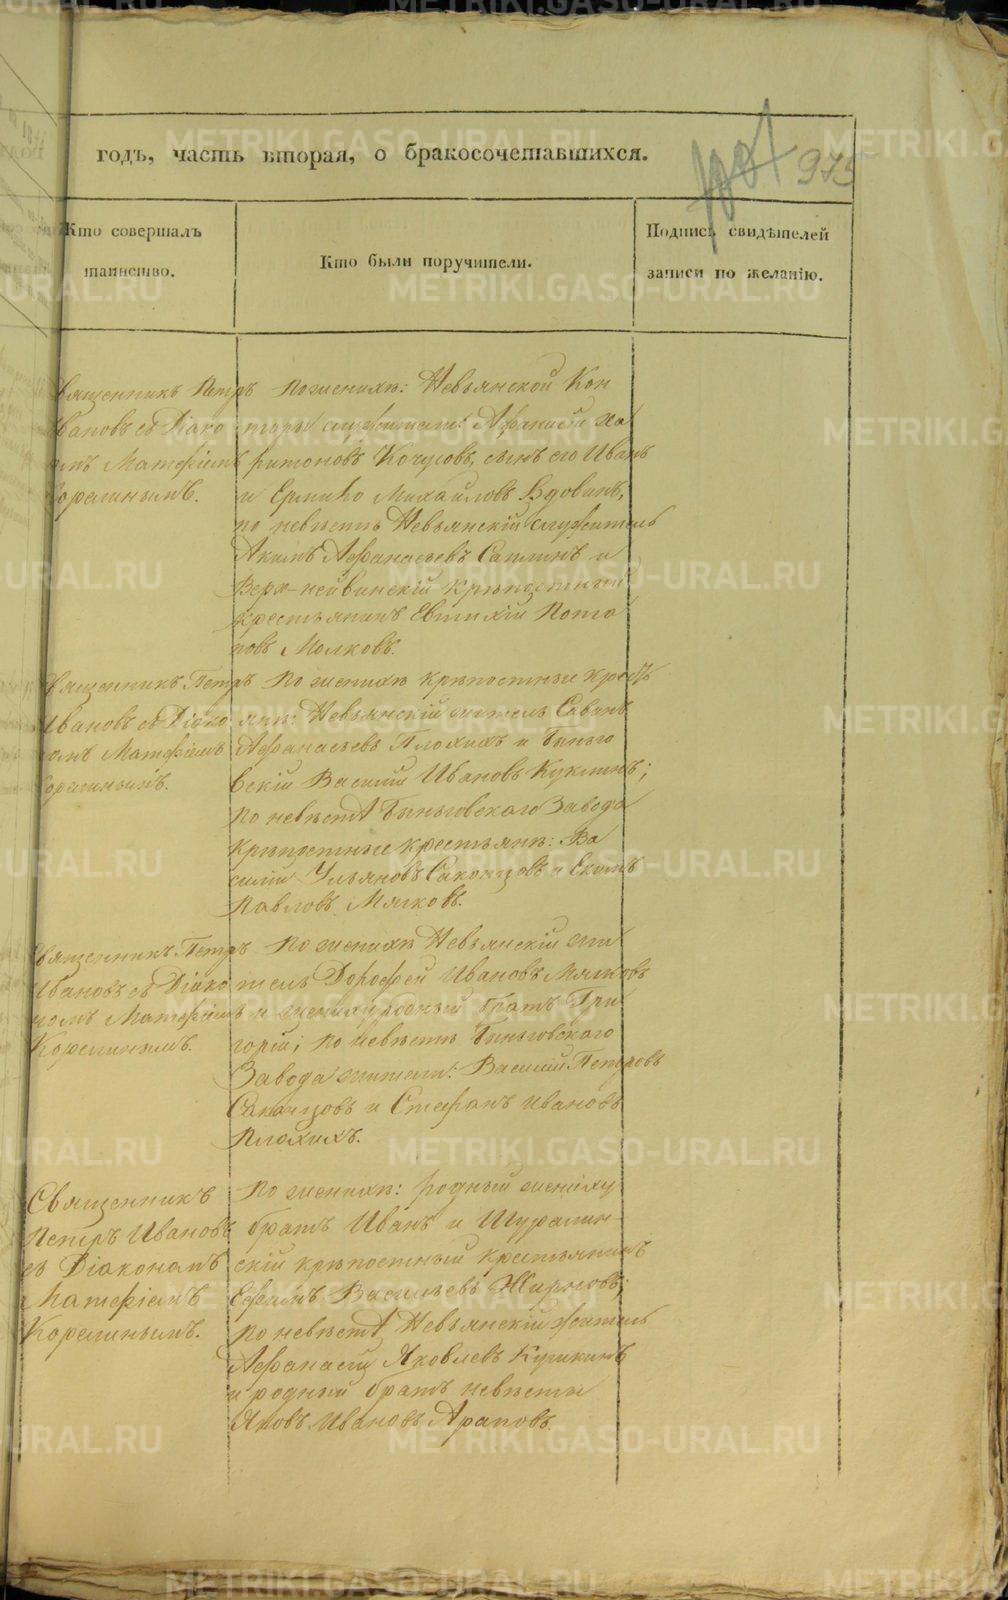 годъ, часть вторая, о бракосочетавшихся.
975
Кто совершалъ таинство.
Кто были поручители.
Подпись свидѣтелей записи по желанію.
Священникъ Петръ
Ивановъ съ Діако
номъ Матѳіемъ
Корелинымъ.
По женихѣ: Невьянской Кон
торы служители: Афанасій Ха
ритоновъ Кочусовъ, сынъ его Иванъ
и Ермило Михайловъ Вдовинъ,
по невѣстѣ Невьянскій служитель
Акимъ Афанасьевъ Саплинъ и
Верх-нейвинскій крѣпостный
крестьянинъ Евтихій Пота
повъ Молковъ.
Священникъ Петръ
Ивановъ съ Діако
номъ Матѳіемъ
Корелинымъ.
По женихѣ крѣпостные крестья
яне: Невьянскій житель Савинъ
Афанасьевъ Плохихъ и Бынго
вскій Василій Ивановъ Куклинъ;
по невѣстѣ Быньговскаго Завода
крѣпостные крестьяне: Ва
силій Ульяновъ Саканцовъ и Екимъ
Павловъ Мягковъ.
Священникъ Петръ
Ивановъ съ Діако
номъ Матѳіемъ
Корелинымъ.
По женихѣ Невьянскій жи
тель Дорофей Ивановъ Мялковъ
и жениху родный братъ Гри
горій; по невѣстѣ Быньговскаго
Завода жители: Василій Петровъ
Саканцовъ и Стефанъ Ивановъ
Плохихъ.
Священникъ
Петръ Ивановъ
съ Діакономъ
Матѳіемъ
Корелинымъ.
По женихѣ: родный жениху
братъ Иванъ и Шуралин-
скій крѣпостный крестьянинъ
Ефимъ Васильевъ Жирновъ;
по невѣстѣ Невьянскій житель
Афанасій Яковлевъ Кушкинъ
и родный братъ невѣсты
Яковъ Ивановъ Араповъ.
METRIKI.GASO-URAL.RU